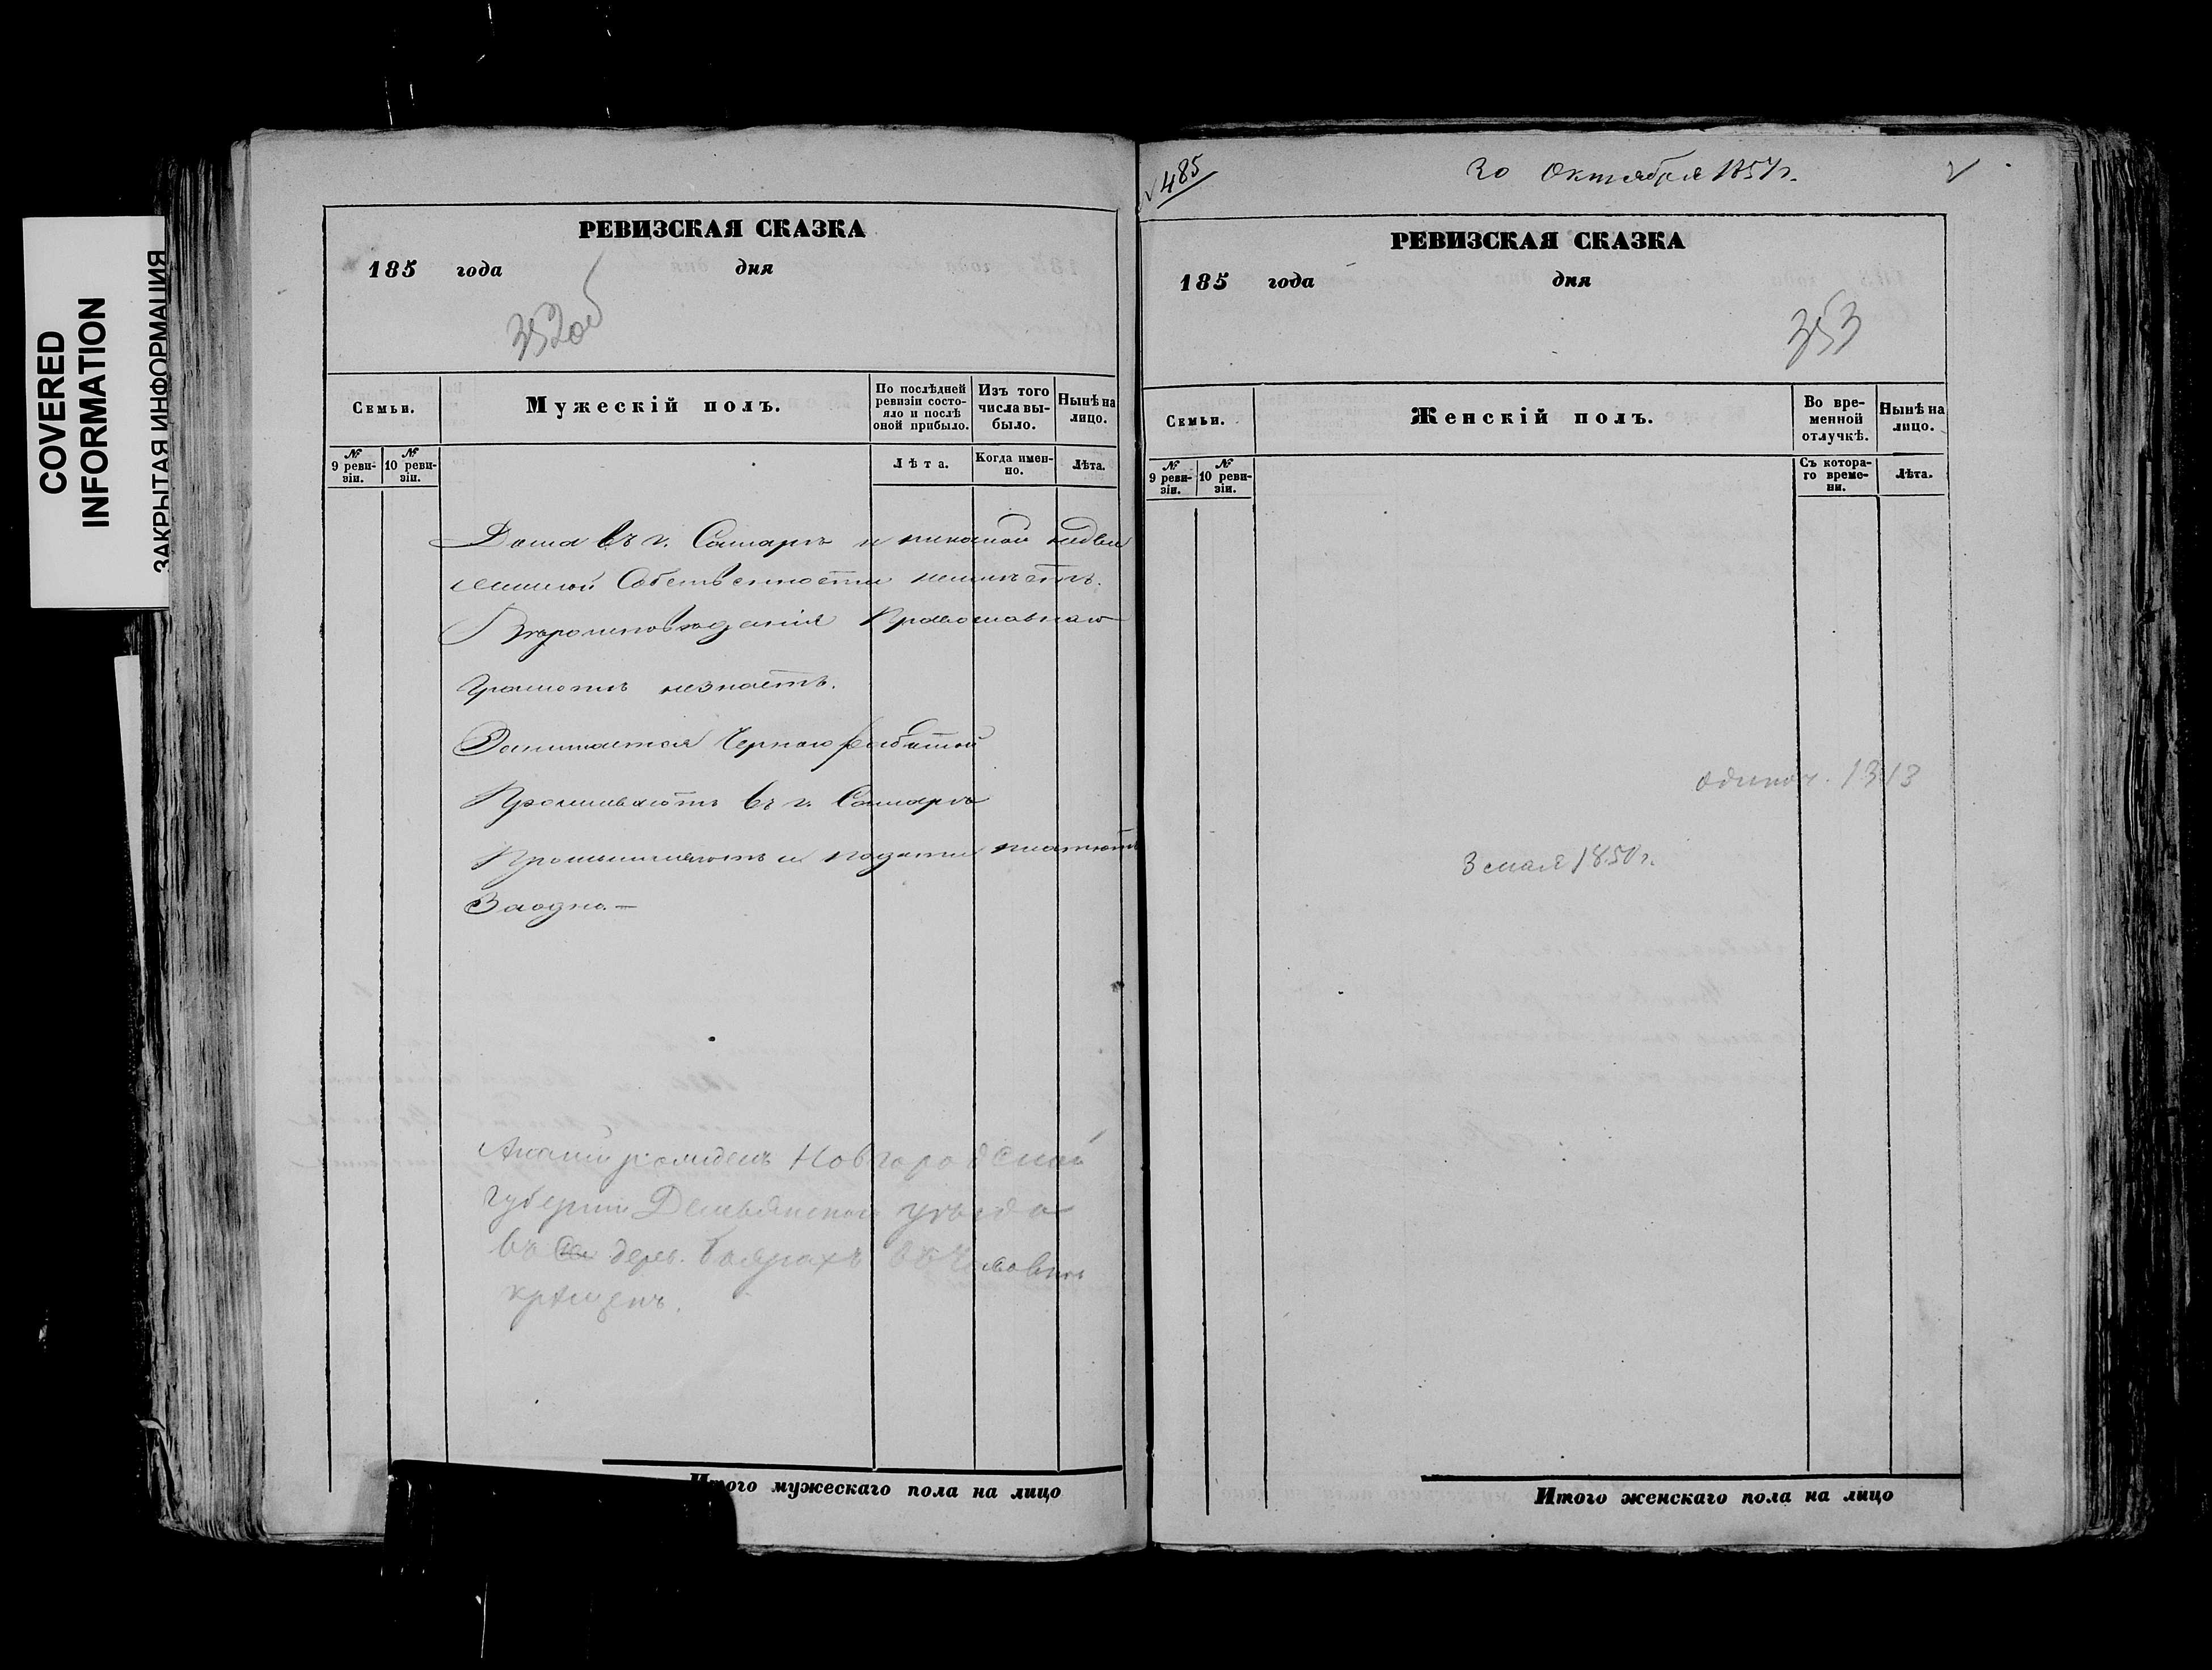 COVERED
INFORMATION
ЗАКРЫТАЯ ИНФОРМАЦИЯ
РЕВИЗСКАЯ СКАЗКА
185 года дня
352об
Семьи.
Мужескій полъ.
По послѣдней ревизіи состояло и послѣ оной прибыло.
Изъ того числа выбыло.
Нынѣ на лицо.
№ 9 ревизіи.
№ 10 ревизіи.
Лѣта.
Когда именно.
Лѣта.
Дома въ г. Самарѣ и никакой недви
жимой Собственности неимѣетъ.
Вѣроисповѣданія Православнаго
Грамотѣ незнаетъ.
Занимается Черною работой
Проживаютъ въ г. Самарѣ
Промышляютъ и подати платютъ
Заодно.—
Новгородской
губерніи Демьянского уѣзда
въ дерев.
крещенъ.
Итого мужескаго пола на лицо
485
30 Октября 1857 г.
РЕВИЗСКАЯ СКАЗКА
185 года дня
353
Семьи.
Женскій полъ.
Во временной отлучкѣ.
Нынѣ на лицо.
№ 9 ревизіи.
№ 10 ревизіи.
Съ котораго времени.
Лѣта.
одинок. 1313
3 мая 1850 г.
Итого женскаго пола на лицо